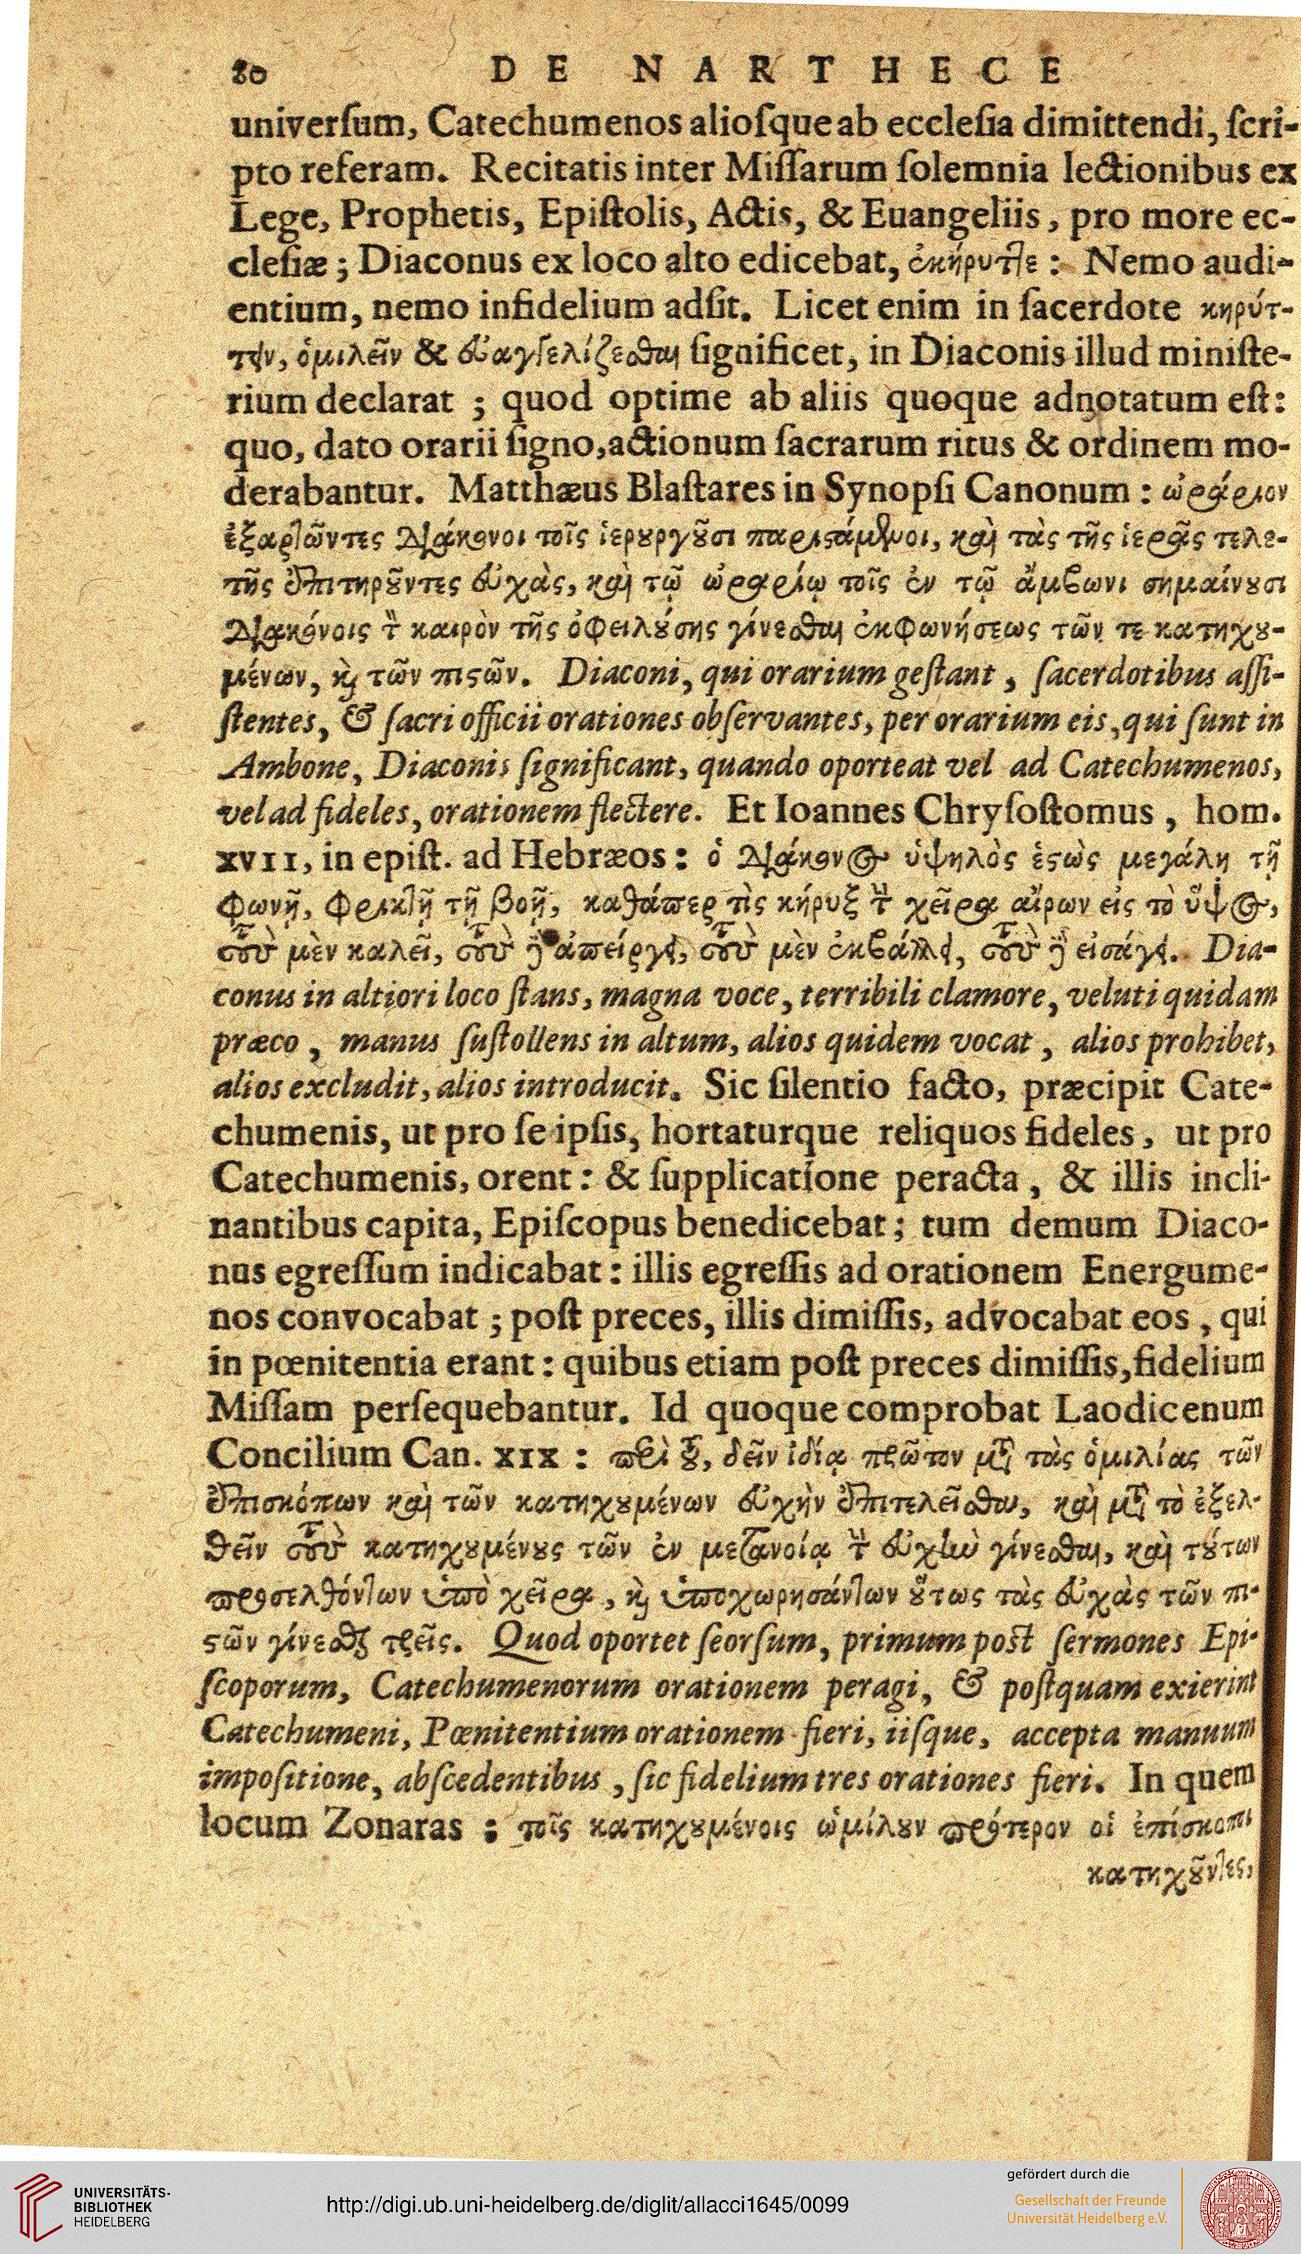 80 DE NARTHECE
universum, Catechumenos aliosque ab ecclesia dimittendi, scri-
pto referam. Recitatis inter Missarum solemnia lectionibus ex
Lege, Prophetis, Epistolis, Actis, & Euangeliis, pro more ec-
clesiæ; Diaconus ex loco alto edicebat, ἐκήρυττε: Nemo audi-
entium, nemo infidelium adsit. Licet enim in sacerdote κηρύτ-
τειν, ὁμιλεῖν & εὐαγγελίζεσθαι significet, in Diaconis illud ministe-
rium declarat; quod optime ab aliis quoque adnotatum est:
quo, dato orarii signo, actionum sacrarum ritus & ordinem mo-
derabantur. Matthæus Blastares in Synopsi Canonum: ὡράριον
ἐξαρτῶντες διάκονοι τοῖς ἱερουργοῦσι παριστάμενοι, καὶ τὰς τῆς ἱερᾶς τελε-
τῆς ἐπιτηροῦντες εὐχὰς, καὶ τῷ ὡραρίῳ τοῖς ἐν τῷ ἄμβωνι σημαίνουσι
διακόνοις τὸν καιρὸν τῆς ὀφειλούσης γίνεσθαι ἐκφωνήσεως τῶν τε κατηχου-
μένων, καὶ τῶν πιστῶν. Diaconi, qui orarium gestant, sacerdotibus assi-
stentes, & sacri officii orationes observantes, per orarium eis, qui sunt in
Ambone, Diaconis significant, quando oporteat vel ad Catechumenos,
vel ad fideles, orationem flectere. Et Ioannes Chrysostomus, hom.
XVII, in epist. ad Hebræos: ὁ διάκονος ὑψηλὸς ἑστὼς μεγάλῃ τῇ
φωνῇ, φρικτῇ τῇ βοῇ, καθάπερ τὶς κήρυξ τὴν χεῖρα αἴρων εἰς τὸ ὕψος,
τοὺς μὲν καλεῖ, τοὺς δὲ ἀπείργει, τοὺς μὲν ἐκβάλλει, τοὺς δὲ εἰσάγει. Dia-
conus in altiori loco stans, magna voce, terribili clamore, veluti quidam
præco, manus sustollens in altum, alios quidem vocat, alios prohibet,
alios excludit, alios introducit. Sic silentio facto, præcipit Cate-
chumenis, ut pro se ipsis, hortaturque reliquos fideles, ut pro
Catechumenis, orent: & supplicatione peracta, & illis incli-
nantibus capita, Episcopus benedicebat; tum demum Diaco-
nus egressum indicabat: illis egressis ad orationem Energume-
nos convocabat; post preces, illis dimissis, advocabat eos, qui
in pœnitentia erant: quibus etiam post preces dimissis, fidelium
Missam persequebantur. Id quoque comprobat Laodicenum
Concilium Can. XIX: περὶ τοῦ, δεῖν ἰδίᾳ πρῶτον μετὰ τὰς ὁμιλίας τῶν
ἐπισκόπων καὶ τῶν κατηχουμένων εὐχὴν ἐπιτελεῖσθαι, καὶ μετὰ τὸ ἐξελ-
θεῖν τοὺς κατηχουμένους τῶν ἐν μετανοίᾳ τὴν εὐχὴν γίνεσθαι, καὶ τούτων
προσελθόντων ὑπὸ χεῖρα, καὶ ὑποχωρησάντων οὕτως τὰς εὐχὰς τῶν πι-
στῶν γίνεσθαι τρεῖς. Quod oportet seorsum, primum post sermones Epi-
scoporum, Catechumenorum orationem peragi, & postquam exierint
Catechumeni, Pœnitentium orationem fieri, iisque, accepta manuum
impositione, abscedentibus, sic fidelium tres orationes fieri. In quem
locum Zonaras: τοῖς κατηχουμένοις ὡμίλουν πρότερον οἱ ἐπίσκοποι
κατηχοῦντες,
UNIVERSITÄTS-
BIBLIOTHEK
HEIDELBERG
http://digi.ub.uni-heidelberg.de/diglit/allacci1645/0099
gefördert durch die
Gesellschaft der Freunde
Universität Heidelberg e.V.